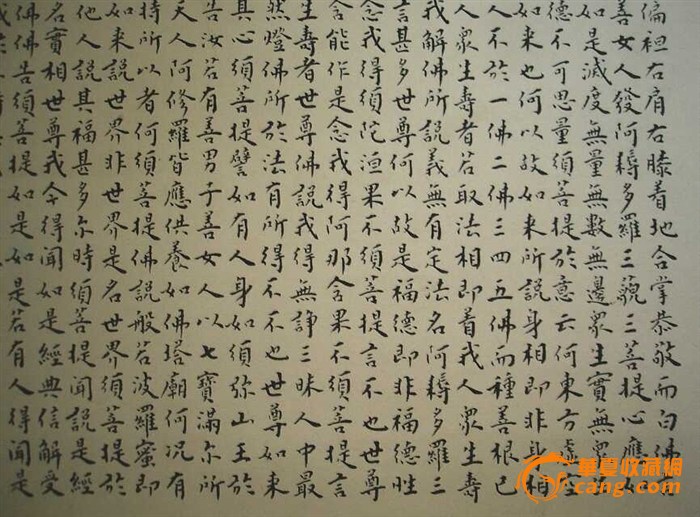 偏袒右肩右膝着地合掌恭敬而白佛
善女人發阿耨多羅三藐三菩提心應如
如是滅度無量無數無邊眾生實無眾
德不可思量須菩提於意云何東方虛空
如來也何以故如來所說身相即非身相
人不於一佛二佛三四五佛而種善根已
人眾生壽者若取法相即着我人眾生壽
我解佛所說義無有定法名阿耨多羅三
言甚多世尊何以故是福德即非福德性
念我得須陀洹果不須菩提言不也世尊
含能作是念我得阿那含果不須菩提言
生壽者世尊佛說我得無諍三昧人中最
然燈佛所於法有所得不不也世尊如來
其心須菩提譬如有人身如須弥山王於
告汝若有善男子善女人以七寶滿尔所
天人阿修羅皆應供養如佛塔廟何況有
持所以者何須菩提佛說般若波羅蜜即
如來說世界非世界是名世界須菩提於
他人說其福甚多尔時須菩提聞說是經
名實相世尊我今得聞如是經典信解受
佛佛告須菩提如是如是若有人得聞是
華夏收藏网
cang.com